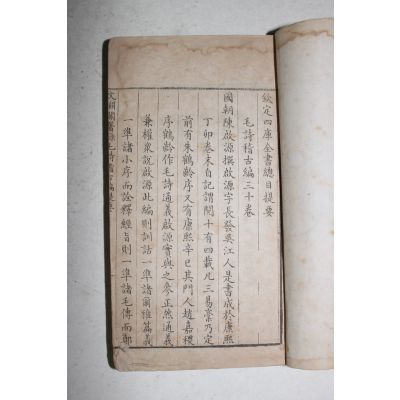 欽定四庫全書總目提要
毛詩稽古編三十卷
國朝陳啟源撰啟源字長發吳江人是書成於康熙
丁卯卷末自記謂閱十有四載凡三易藁乃定
前有朱鶴齡序又有康熙辛巳其門人趙嘉稷
序鶴齡作毛詩通義啟源實與之參正然通義
兼權衆說啟源此編則訓詁一準諸爾雅篇義
一準諸小序而詮釋經旨則一準諸毛傳而鄭